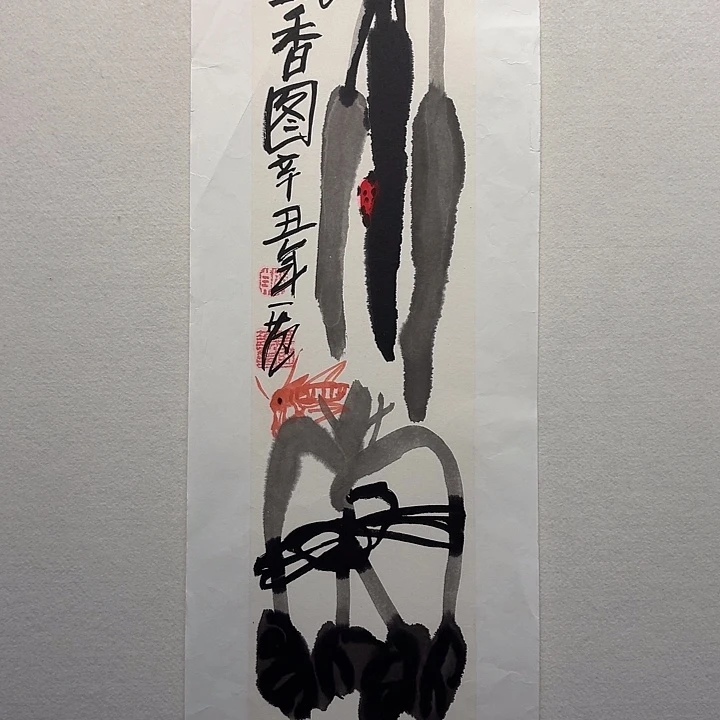 香图辛丑年一